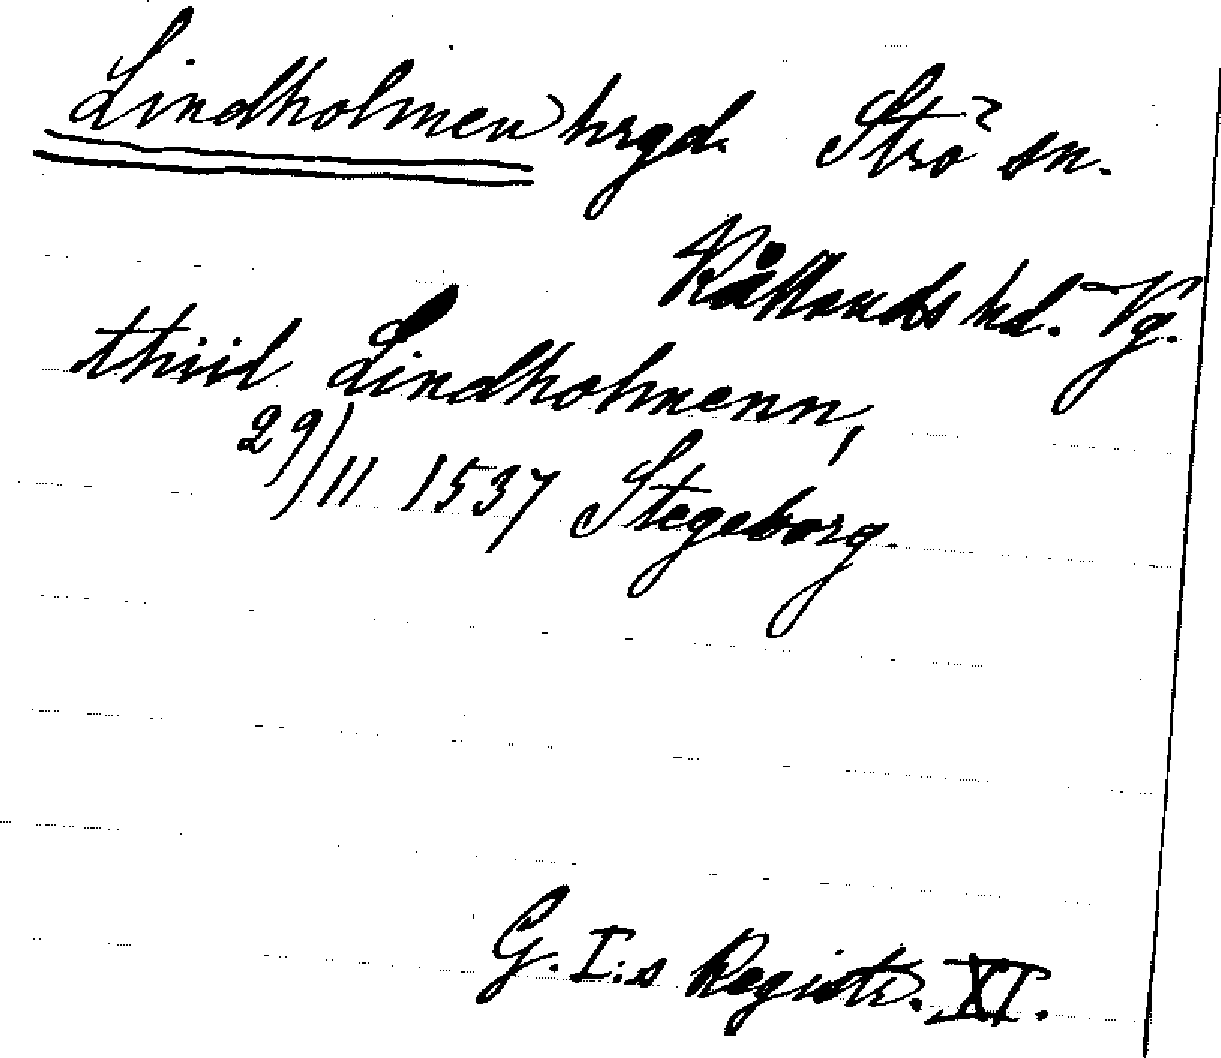 Lindholmen hrgd. Strö sn.
Kållands hd. Vg.
thiil Lindholmenn,
29/11 1537 Stegeborg.
G. I:s Registr. XI.